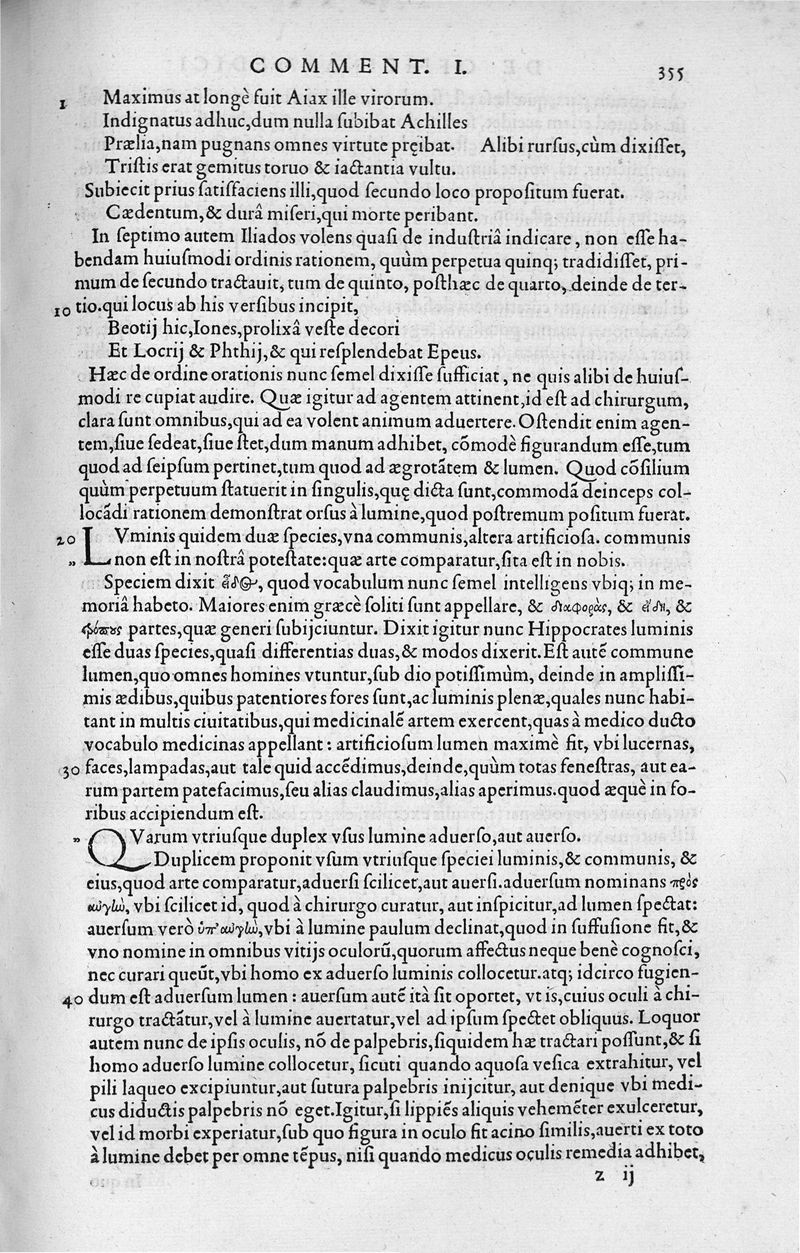 COMMENT. I. 355
1 Maximus at longè fuit Aiax ille virorum.
Indignatus adhuc,dum nulla ſubibat Achilles
Prælia,nam pugnans omnes virtute pręibat. Alibi rurſus,cùm dixiſſet,
Triſtis erat gemitus toruo & iactantia vultu.
Subiecit prius ſatiſfaciens illi,quod ſecundo loco propoſitum fuerat.
Cædentum,& durâ miſeri,qui morte peribant.
In ſeptimo autem Iliados volens quaſi de induſtriâ indicare, non eſſe ha-
bendam huiuſmodi ordinis rationem, quùm perpetua quinq; tradidiſſet, pri-
mum de ſecundo tractauit, tum de quinto, poſthæc de quarto, deinde de ter-
10 tio.qui locus ab his verſibus incipit,
Beotij hic,Iones,prolixâ veſte decori
Et Locrij & Phthij,& qui reſplendebat Epeus.
Hæc de ordine orationis nunc ſemel dixiſſe ſufficiat, ne quis alibi de huiuſ-
modi re cupiat audire. Quæ igitur ad agentem attinent,id eſt ad chirurgum,
clara ſunt omnibus,qui ad ea volent animum aduertere. Oſtendit enim agen-
tem,ſiue ſedeat,ſiue ſtet,dum manum adhibet, cōmodè figurandum eſſe,tum
quod ad ſeipſum pertinet,tum quod ad ægrotātem & lumen. Quod cōſilium
quùm perpetuum ſtatuerit in ſingulis,quę dicta ſunt,commodā deinceps col-
locādi rationem demonſtrat orſus à lumine,quod poſtremum poſitum fuerat.
20 LVminis quidem duæ ſpecies,vna communis,altera artificioſa. communis
„ non eſt in noſtrâ poteſtate:quæ arte comparatur,ſita eſt in nobis.
Speciem dixit εἶδος, quod vocabulum nunc ſemel intelligens vbiq; in me-
moriâ habeto. Maiores enim græcè ſoliti ſunt appellare, & διαφορὰς, & εἴδη, &
τρόπους partes,quæ generi ſubijciuntur. Dixit igitur nunc Hippocrates luminis
eſſe duas ſpecies,quaſi differentias duas,& modos dixerit.Eſt autē commune
lumen,quo omnes homines vtuntur,ſub dio potiſſimùm, deinde in ampliſſi-
mis ædibus,quibus patentiores fores ſunt,ac luminis plenæ,quales nunc habi-
tant in multis ciuitatibus,qui medicinalē artem exercent,quas à medico ducto
vocabulo medicinas appellant : artificioſum lumen maximè fit, vbi lucernas,
30 faces,lampadas,aut tale quid accēdimus,deinde,quùm totas feneſtras, aut ea-
rum partem patefacimus,ſeu alias claudimus,alias aperimus.quod æquè in fo-
ribus accipiendum eſt.
„ QVarum vtriuſque duplex vſus lumine aduerſo,aut auerſo.
Duplicem proponit vſum vtriuſque ſpeciei luminis,& communis, &
eius,quod arte comparatur,aduerſi ſcilicet,aut auerſi.aduerſum nominans πρὸς
αὐγὼ, vbi ſcilicet id, quod à chirurgo curatur, aut inſpicitur,ad lumen ſpectat:
auerſum verò ὑπ' αὐγὼ,vbi à lumine paulum declinat,quod in ſuffuſione fit,&
vno nomine in omnibus vitijs oculorū,quorum affectus neque benè cognoſci,
nec curari queūt,vbi homo ex aduerſo luminis collocetur.atq; idcirco fugien-
40 dum eſt aduerſum lumen : auerſum autē ità ſit oportet, vt is,cuius oculi à chi-
rurgo tractātur,vel à lumine auertatur,vel ad ipſum ſpectet obliquus. Loquor
autem nunc de ipſis oculis, nō de palpebris,ſiquidem hæ tractari poſſunt,& ſi
homo aduerſo lumine collocetur, ſicuti quando aquoſa veſica extrahitur, vel
pili laqueo excipiuntur,aut ſutura palpebris inijcitur, aut denique vbi medi-
cus diductis palpebris nō eget.Igitur,ſi lippiēs aliquis vehemēter exulceretur,
vel id morbi experiatur,ſub quo figura in oculo fit acino ſimilis,auerti ex toto
à lumine debet per omne tēpus, niſi quando medicus oculis remedia adhibet,
z ij